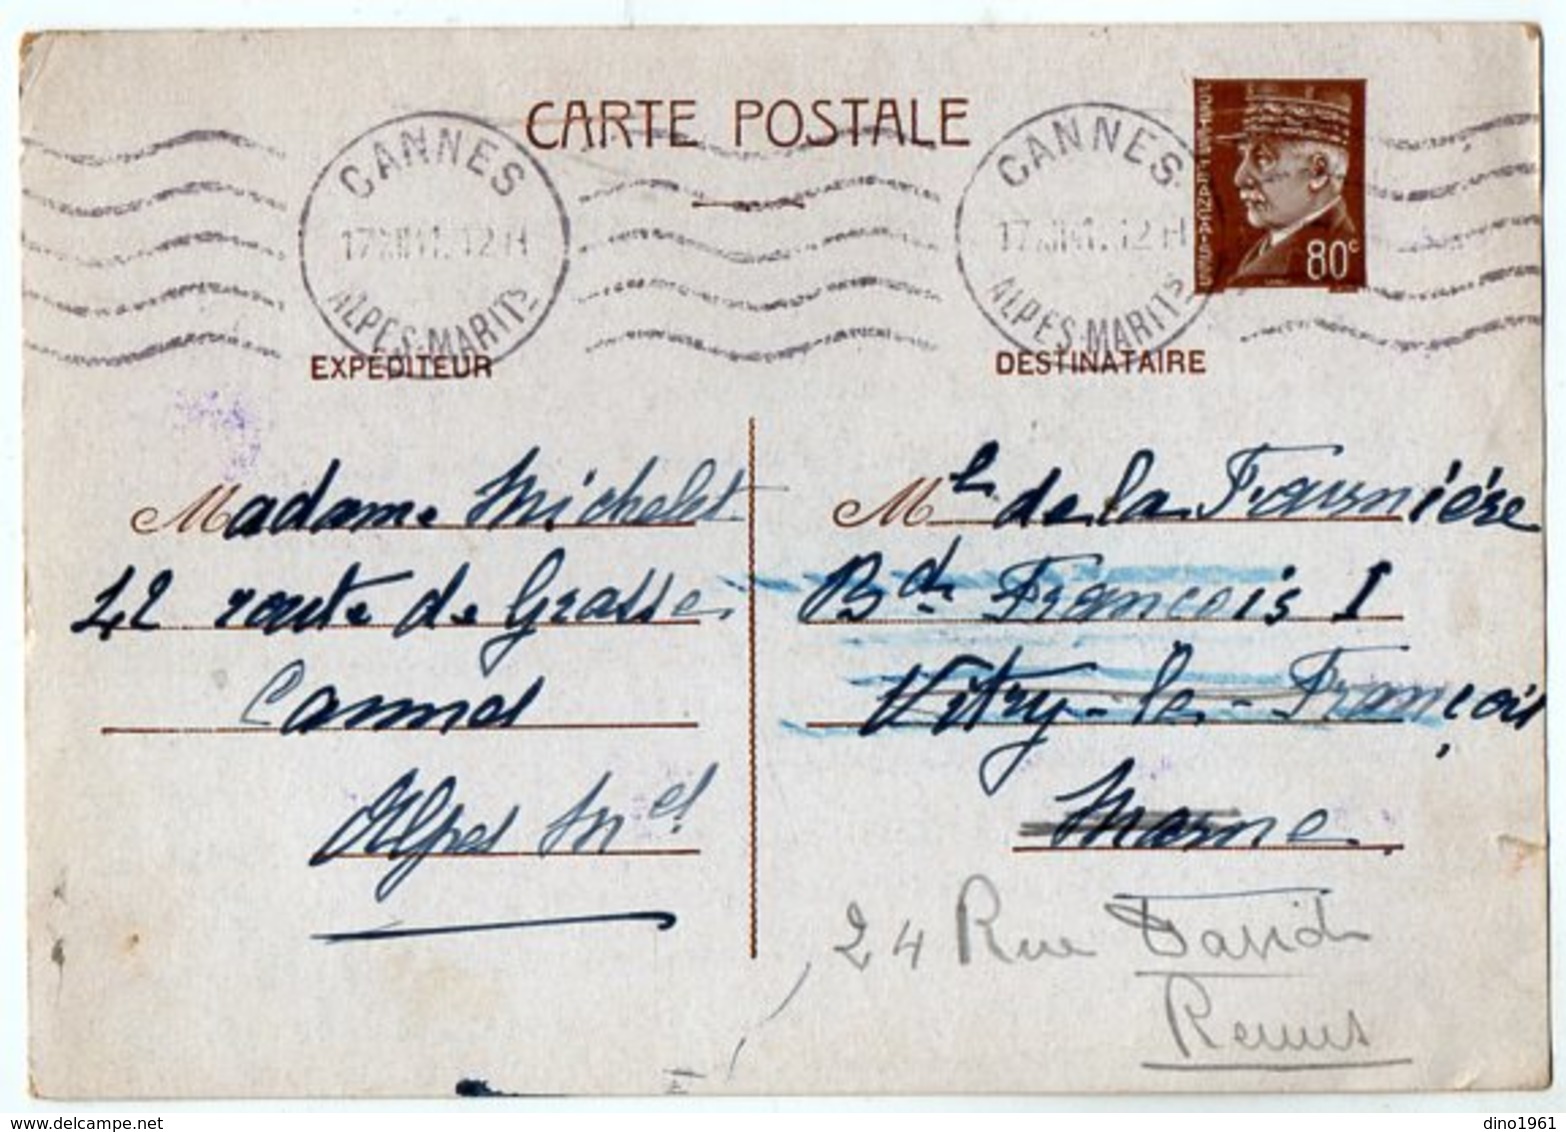 CARTE POSTALE
CANNES
12H
ALPES-MARIT^S
CANNES
12H
ALPES-MARIT^S
80^c
EXPÉDITEUR
Madame Michelet
42 route de Grasse
Cannes
Alpes M^es
DESTINATAIRE
M^le de la Fournière
B^d François I
Vitry-le-François
Marne
24 Rue David
Reims
dino1961